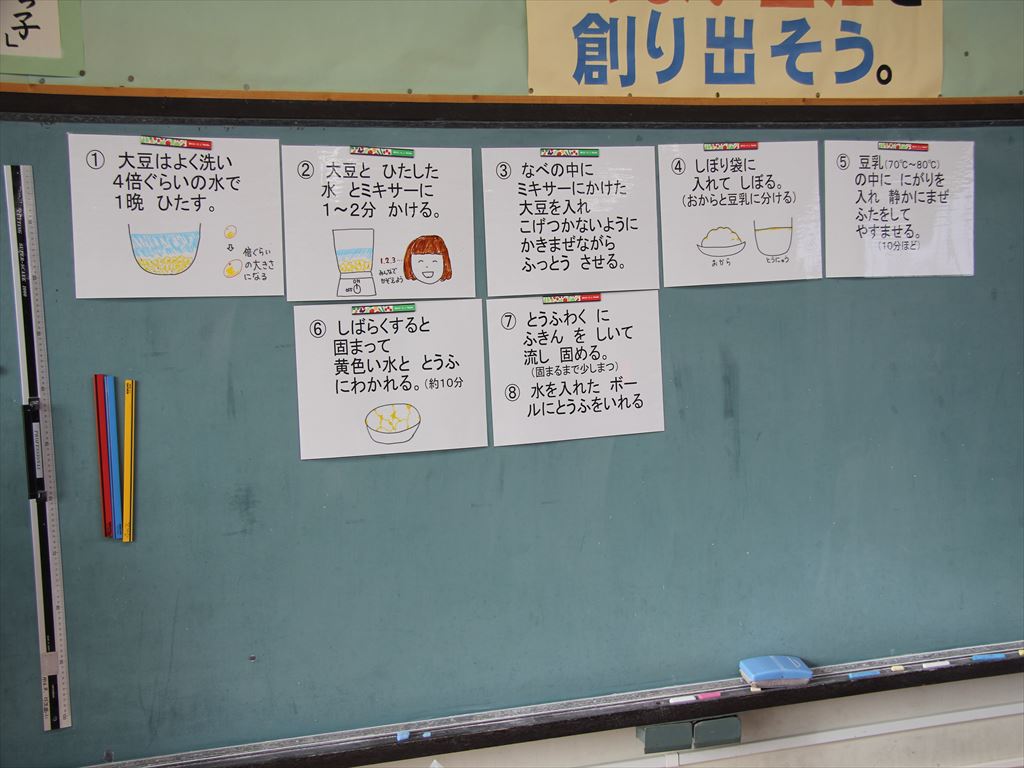 子」
創り出そう。
① 大豆はよく洗い
4倍ぐらいの水で
1晩 ひたす。
倍ぐらい
の大きさ
になる
② 大豆と ひたした
水 とミキサーに
1～2分 かける。
1.2.3…
みんなで
かぞえよう
ON
OFF
③ なべの中に
ミキサーにかけた
大豆を入れ
こげつかないように
かきまぜながら
ふっとう させる。
④ しぼり袋に
入れて しぼる。
(おからと豆乳に分ける)
おから
とうにゅう
⑤ 豆乳(70℃～80℃)
の中に にがりを
入れ 静かにまぜ
ふたをして
やすませる。
(10分ほど)
⑥ しばらくすると
固まって
黄色い水と とうふ
にわかれる。(約10分
⑦ とうふわく に
ふきん を しいて
流し 固める。
(固まるまで少しまつ)
⑧ 水を入れた ボー
ルにとうふをいれる